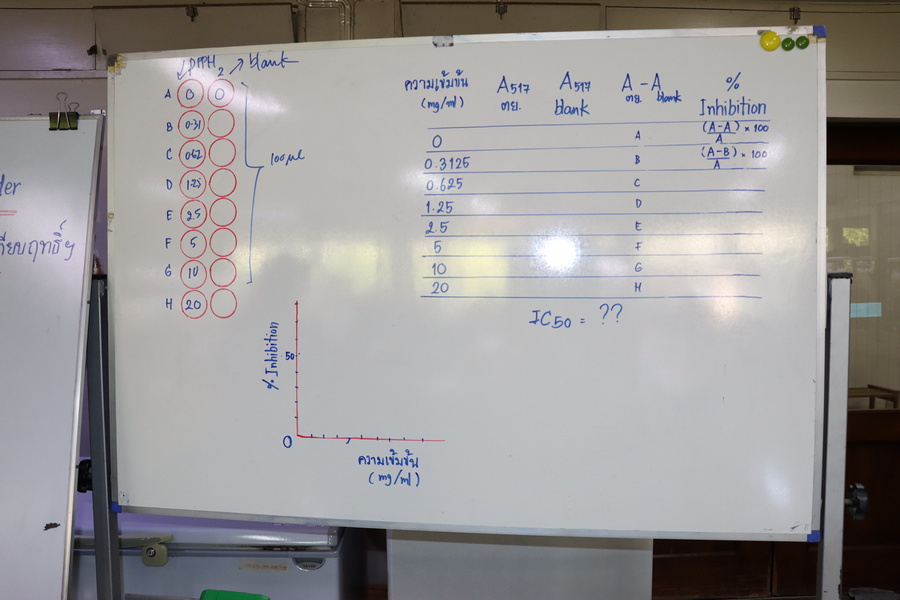 DPPH 2 → blank
A 0 0
B 0.31
C 0.62
D 1.25
E 2.5
F 5
G 10
H 20
100 µl
ความเข้มข้น (mg/ml) A517 ตย. A517 blank A ตย. - A blank % Inhibition
0 A (A-A)/A × 100
0.3125 B (A-B)/A × 100
0.625 C
1.25 D
2.5 E
5 F
10 G
20 H
IC50 = ??
% Inhibition
50
0
ความเข้มข้น
(mg/ml)